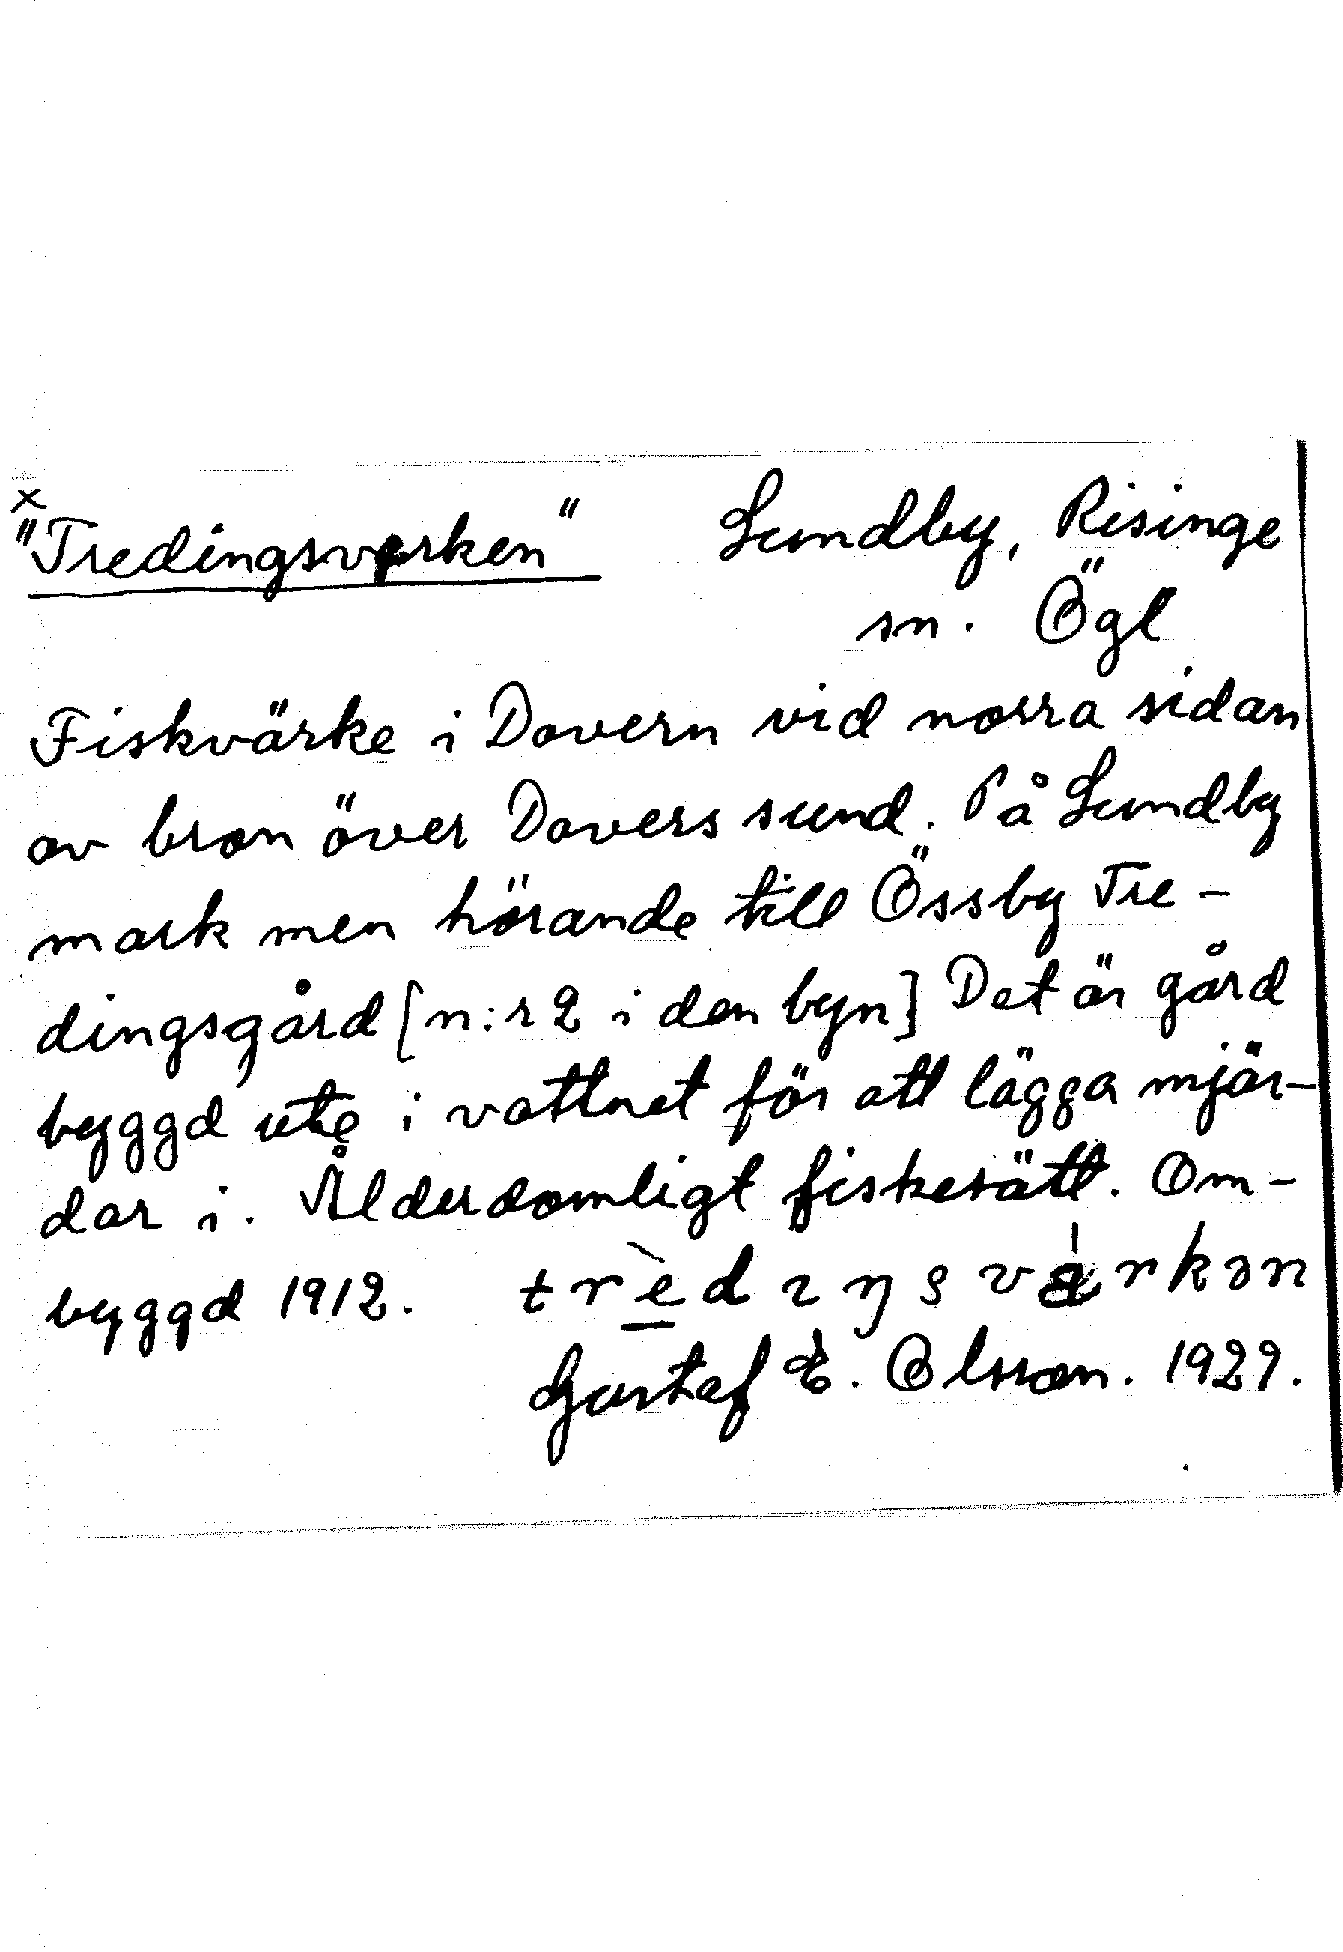 x
"Tredingsverken" Lundby, Risinge
sn. Ögl
Fiskvärke i Dovern vid norra sidan
av bron över Dovers sund. På Lundby
mark men hörande till Össby Tre-
dingsgård [n:r 2 i den byn] Det är gård
byggd ute i vattnet för att lägga mjär-
dar i. Ålderdomligt fiskesätt. Om-
byggd 1912.
Gustaf E. Olsson. 1929.